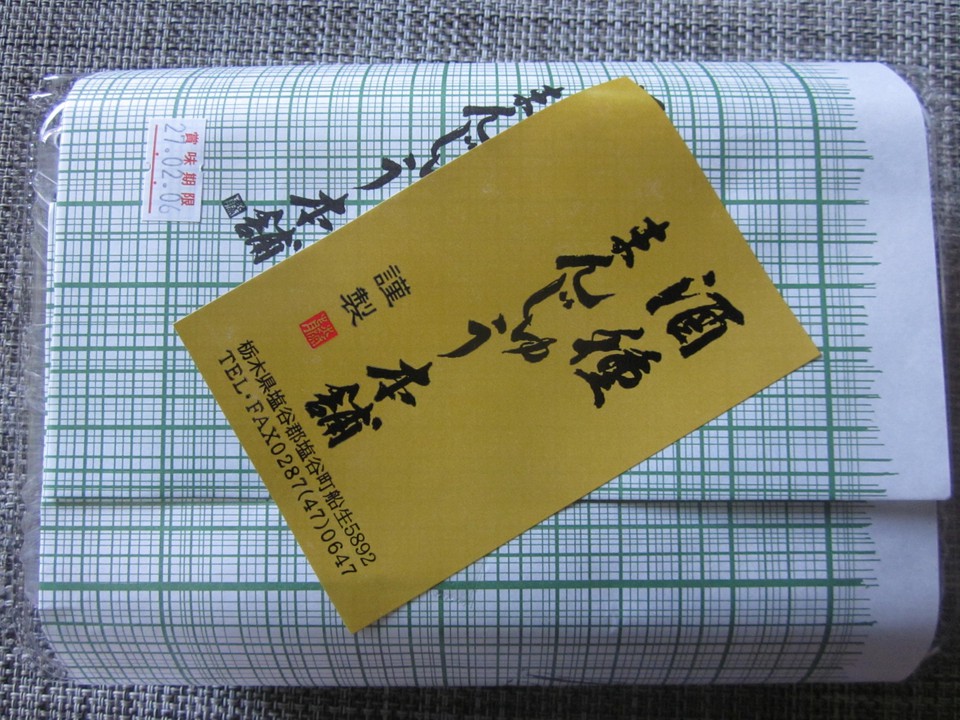 酒種
まんじゅう
本舗
謹製
栃木県塩谷郡塩谷町船生5892
TEL・FAX0287(47)0647
まんじゅう
本舗
賞味期限
27.02.06